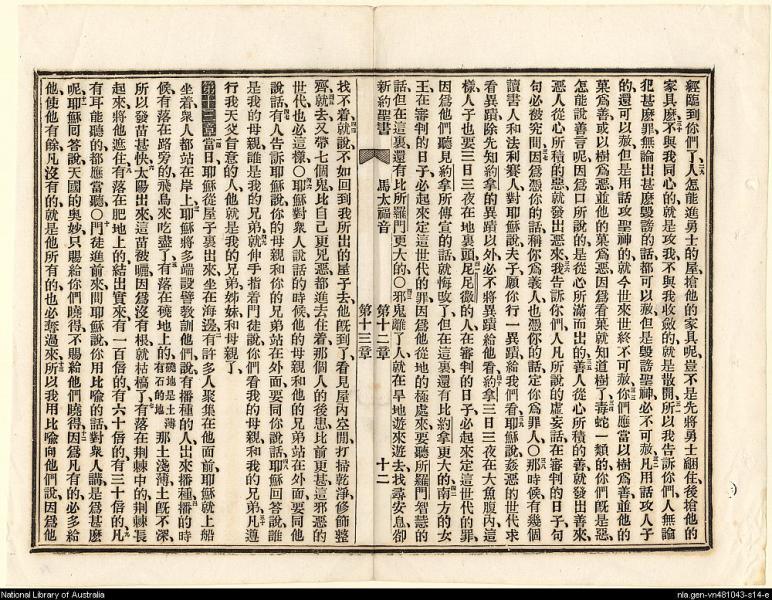 經臨到你們了、人怎能進勇士的屋搶他的家具呢豈不是先將勇士綑住後搶他的
家具麼、不與我同心的就是攻我不與我收斂的就是散開所以我告訴你們人無論
犯甚麼罪無論出甚麼毀謗的話都可以赦但是毀謗聖神必不可赦凡用話攻人子
的還可以赦但是用話攻聖神的就今世來世終不可赦你們應當以樹爲善並他的
菓爲善或以樹爲惡並他的菓爲惡因爲看菓就知道樹了毒蛇一類的你們旣是惡
怎能說善言呢因爲口所說的是從心所滿而出的善人從心所積的善就發出善來、
惡人從心所積的惡就發出惡來我告訴你們人凡所說的虛妄話在審判的日子句
句必被究問因爲憑你的話稱你爲義人也憑你的話定你爲罪人〇那時候有幾個
讀書人和法利賽人對耶穌說夫子願你行一異蹟給我們看耶穌說姦惡的世代求
看異蹟除先知約拿的異蹟以外必不將異蹟給他看約拿三日三夜在大魚腹內這
樣人子也要三日三夜在地裏頭尼尼微的人在審判的日子必起來定這世代的罪
因爲他們聽見約拿所傳宣的話就悔改了但在這裏還有比約拿更大的南方的女
王在審判的日子必起來定這世代的罪因爲他從地的極處來要聽所羅門智慧的
話但在這裏還有比所羅門更大的〇邪鬼離了人就在旱地遊來遊去找尋安息卻
新約聖書 馬太福音 第十二章 第十三章 十二
找不着就說不如回到我所出的屋子去他旣到了看見屋內空閒打掃乾淨修飾整
齊就去又帶七個鬼比自己更兇惡都進去住着那個人的後患比前更甚這邪惡的
世代也必這樣〇耶穌對衆人說話的時候他的母親和他的兄弟站在外面要同他
說話有人告訴耶穌說你的母親和你的兄弟站在外面要同你說話耶穌回答說誰
是我的母親誰是我的兄弟就伸手指着門徒說你們看我的母親和我的兄弟凡遵
行我天父旨意的人他就是我的兄弟姊妹和母親了
第十三章當日耶穌從屋子裏出來坐在海邊有許多人聚集在他面前耶穌就上船
坐着衆人都站在岸上耶穌將多端設譬教訓他們說有播種的人出來播種播的時
候有落在路旁的飛鳥來吃盡了有落在磽地上的磽地是土薄有石的地那土淺薄土旣不深、
所以發苗甚快太陽出來這苗被曬因爲沒有根就枯槁了有落在荆棘中的荆棘長
起來將他遮住有落在肥地上的結出實來有一百倍的有六十倍的有三十倍的凡
有耳能聽的都應當聽〇門徒進前來問耶穌說你用比喻的話對衆人講是爲甚麼
呢耶穌回答說天國的奧妙只賜給你們曉得不賜給他們曉得因爲凡有的必多給
他使他有餘凡沒有的就是他所有的也必奪過來所以我用比喻向他們說因爲他
National Library of Australia
nla.gen-vn481043-s14-e